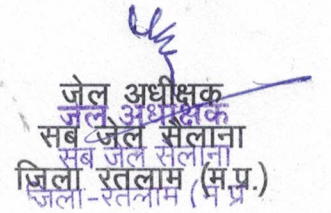 जेल अधीक्षक
जेल अधीक्षक
सब जेल सैलाना
सब जेल सैलाना
जिला रतलाम (म.प्र.)
जिला-रतलाम (म प्र